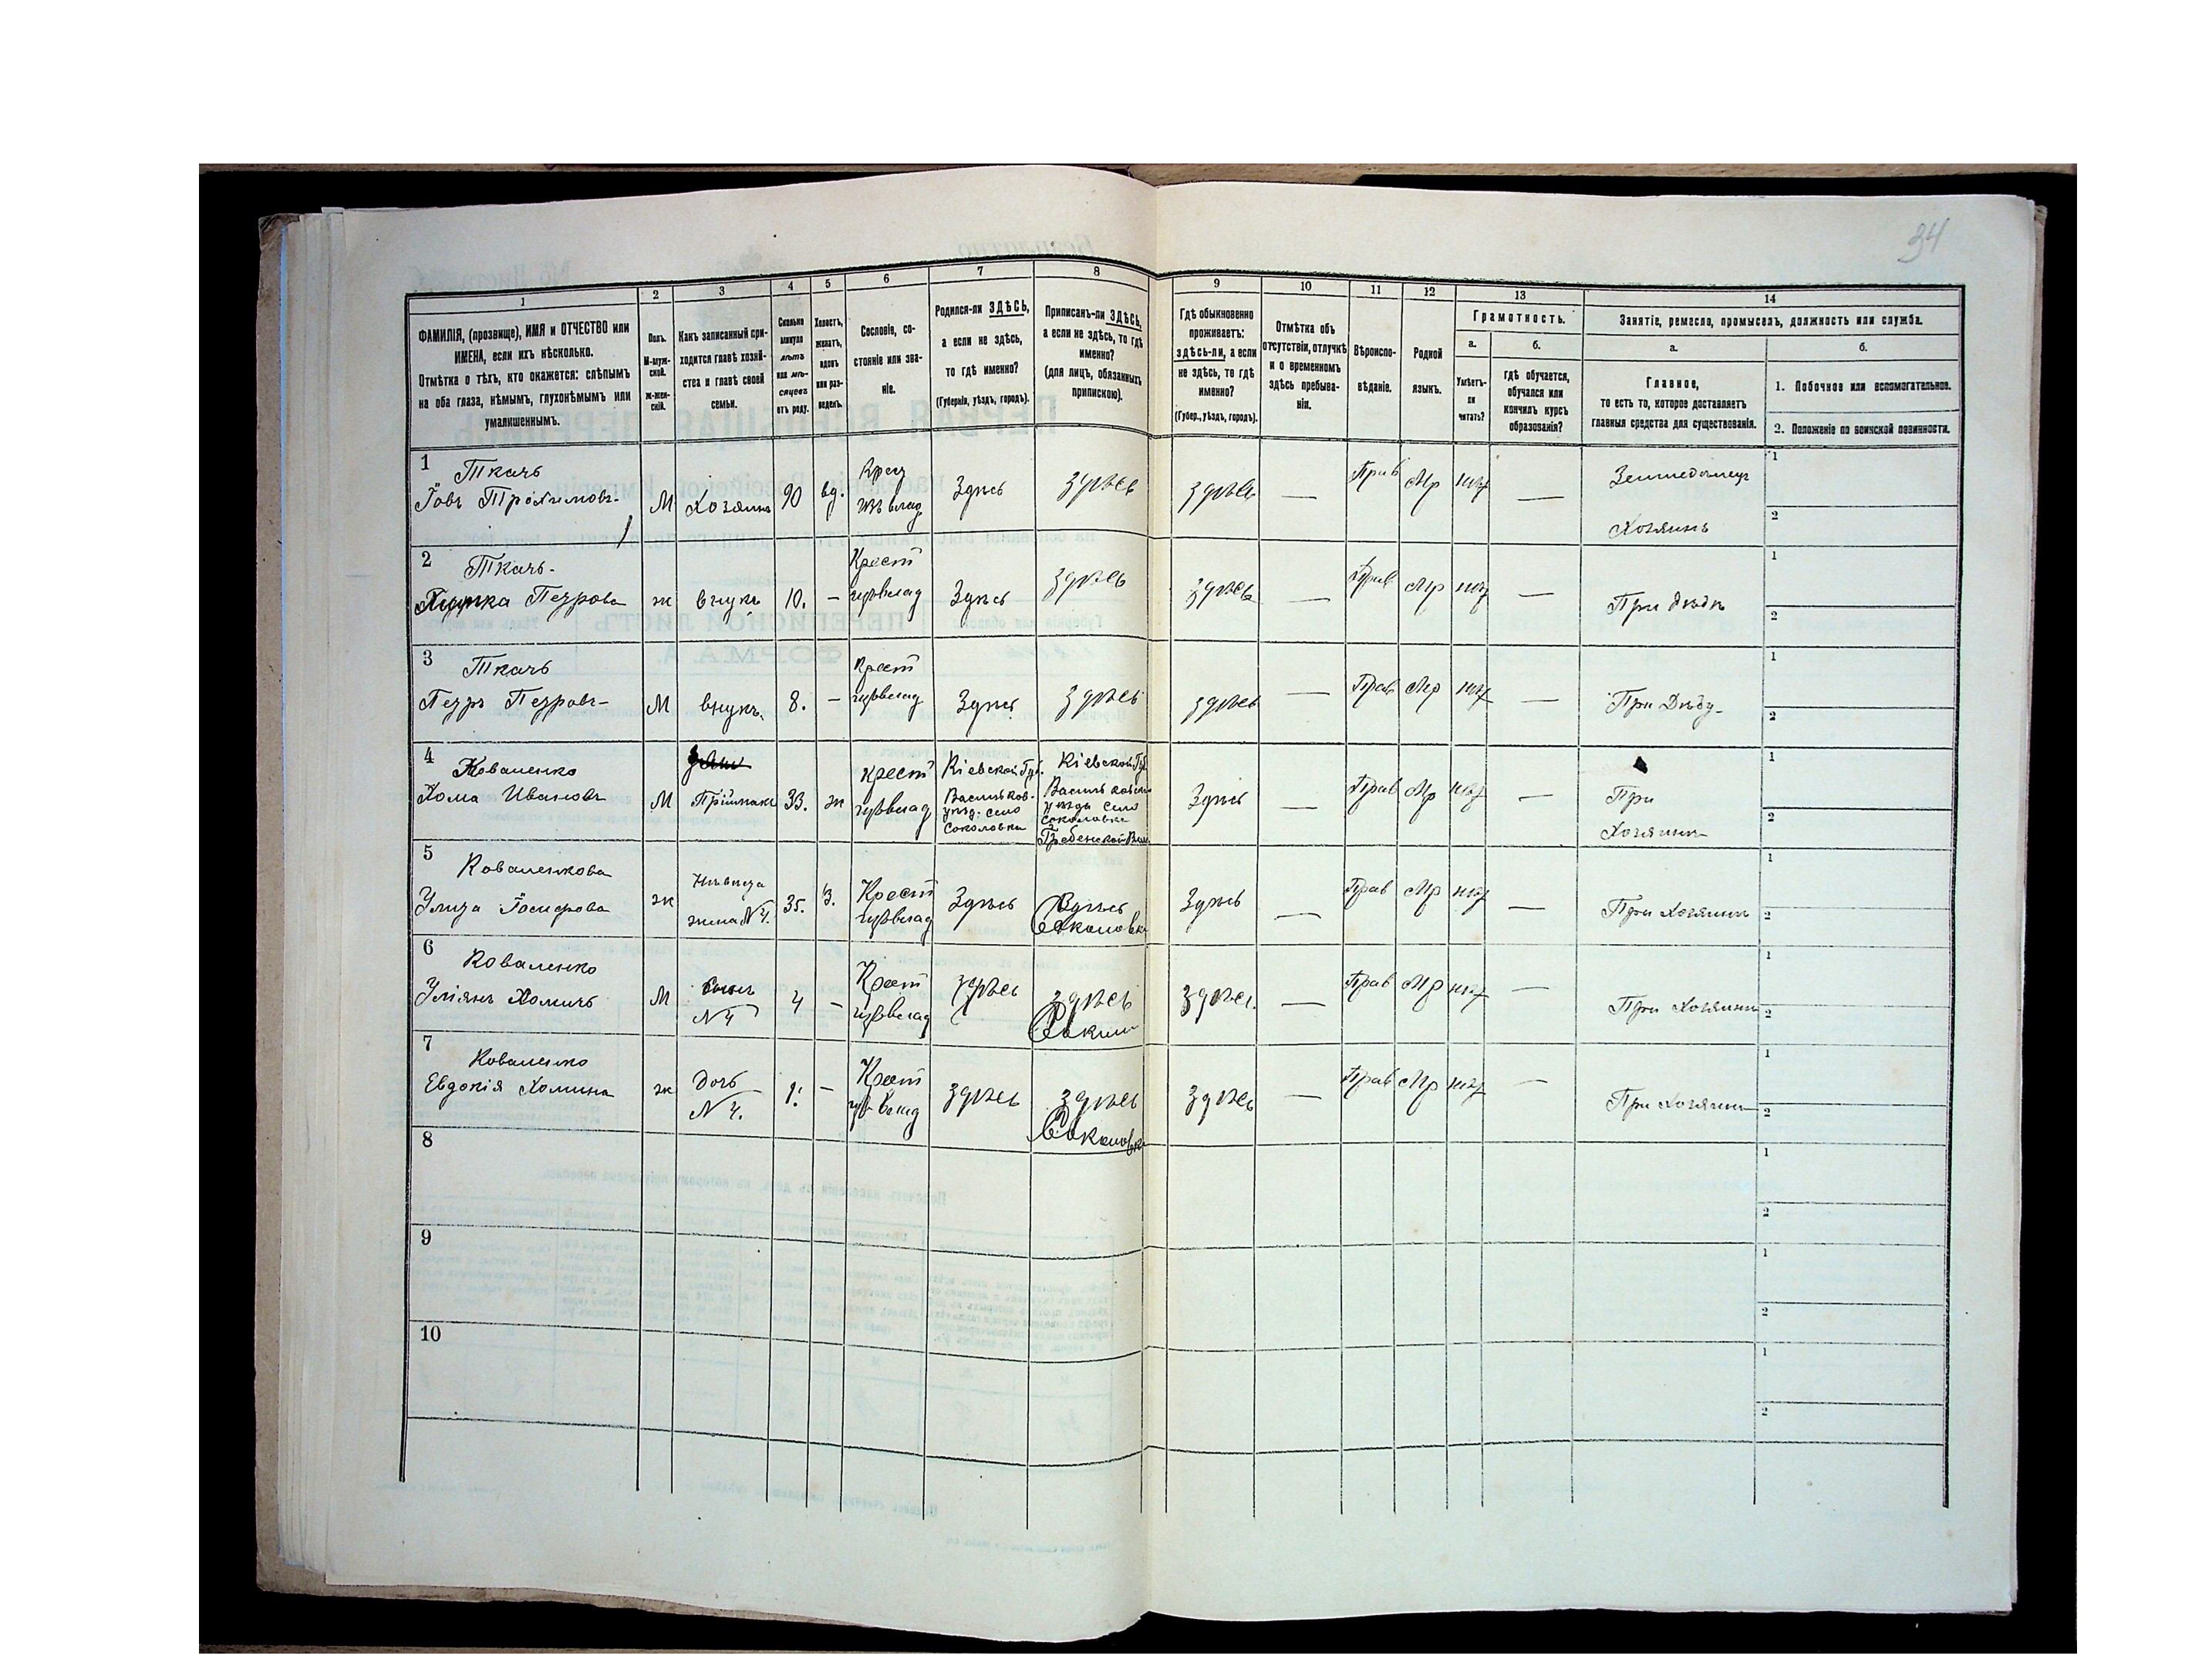 34
1
2
3
4
5
6
7
8
9
10
11
12
13
14
ФАМИЛІЯ, (прозвище), ИМЯ и ОТЧЕСТВО или
ИМЕНА, если ихъ нѣсколько.
Отмѣтка о тѣхъ, кто окажется: слѣпымъ
на оба глаза, нѣмымъ, глухонѣмымъ или
умалишеннымъ.
Полъ.
М-муж-
ской.
Ж-жен-
скій.
Какъ записанный при-
ходится главѣ хозяй-
ства и главѣ своей
семьи.
Сколько
минуло
лѣтъ
или мѣ-
сяцевъ
отъ роду.
Холостъ,
женатъ,
вдовъ
или раз-
веденъ.
Сословіе, со-
стояніе или зва-
ніе.
Родился-ли ЗДѢСЬ,
а если не здѣсь,
то гдѣ именно?
(Губернія, уѣздъ, городъ).
Приписанъ-ли ЗДѢСЬ,
а если не здѣсь, то гдѣ
именно?
(для лицъ, обязанныхъ
припискою).
Гдѣ обыкновенно
проживаетъ:
здѣсь-ли, а если
не здѣсь, то гдѣ
именно?
(Губер., уѣздъ, городъ).
Отмѣтка объ
отсутствіи, отлучкѣ
и о временномъ
здѣсь пребыва-
ніи.
Вѣроиспо-
вѣданіе.
Родной
языкъ.
Грамотность.
а.
Умѣетъ-
ли
читать?
б.
гдѣ обучается,
обучался или
кончилъ курсъ
образованія?
Занятіе, ремесло, промыселъ, должность или служба.
а.
Главное,
то есть то, которое доставляетъ
главныя средства для существованія.
б.
1. Побочное или вспомогательное.
2. Положеніе по воинской повинности.
1
Ткачь
Іовъ Трохимовъ
М
Хозяинъ
90
вд.
Крест
изъ влад
Здѣсь
здѣсь
здѣсь
—
Прав
Мр
нѣт
—
Земледѣлецъ
Хозяинъ
1
2
2
Ткачь-
Петрова
ж
внукъ
10.
—
Крест
изъ влад
Здѣсь
здѣсь
здѣсь
—
Прав
Мр
нѣт
—
При дѣдѣ
1
2
3
Ткачь
Петръ Петровъ-
М
внукъ.
8.
—
Крест
изъ влад
Здѣсь
здѣсь
здѣсь
—
Прав
Мр
нѣт
—
При Дѣду-
1
2
4
Коваленко
Хома Ивановъ
М
Пріймакъ
33.
ж
Крест
изъ влад
Кіевской Губ.
Васильков-
уѣзд. село
Соколовка
Кіевской Губ
Васильковск
уѣзда село
Соколовка
Гребенской Вол.
Здѣсь
—
Прав
Мр
нѣт
—
При
Хозяинѣ
1
2
5
Коваленкова
Улита Іосифова
ж
жена №4.
35.
З.
Крест
изъ влад
Здѣсь
Здѣсь
Соколовк
Здѣсь
—
Прав
Мр
нѣт
—
При Хозяинѣ
1
2
6
Коваленко
Уліянъ Хомичъ
М
Сынъ
№4
4
—
Крест
изъ влад
здѣсь
здѣсь
здѣсь.
—
Прав
Мр
нѣт
—
При Хозяинѣ
1
2
7
Коваленко
Евдокія Хомина
ж
Дочь
№4.
1.
—
Крест
изъ влад
здѣсь
здѣсь
Соколовк
здѣсь
—
Прав
Мр
нѣт
—
При Хозяинѣ
1
2
8
1
2
9
1
2
10
1
2